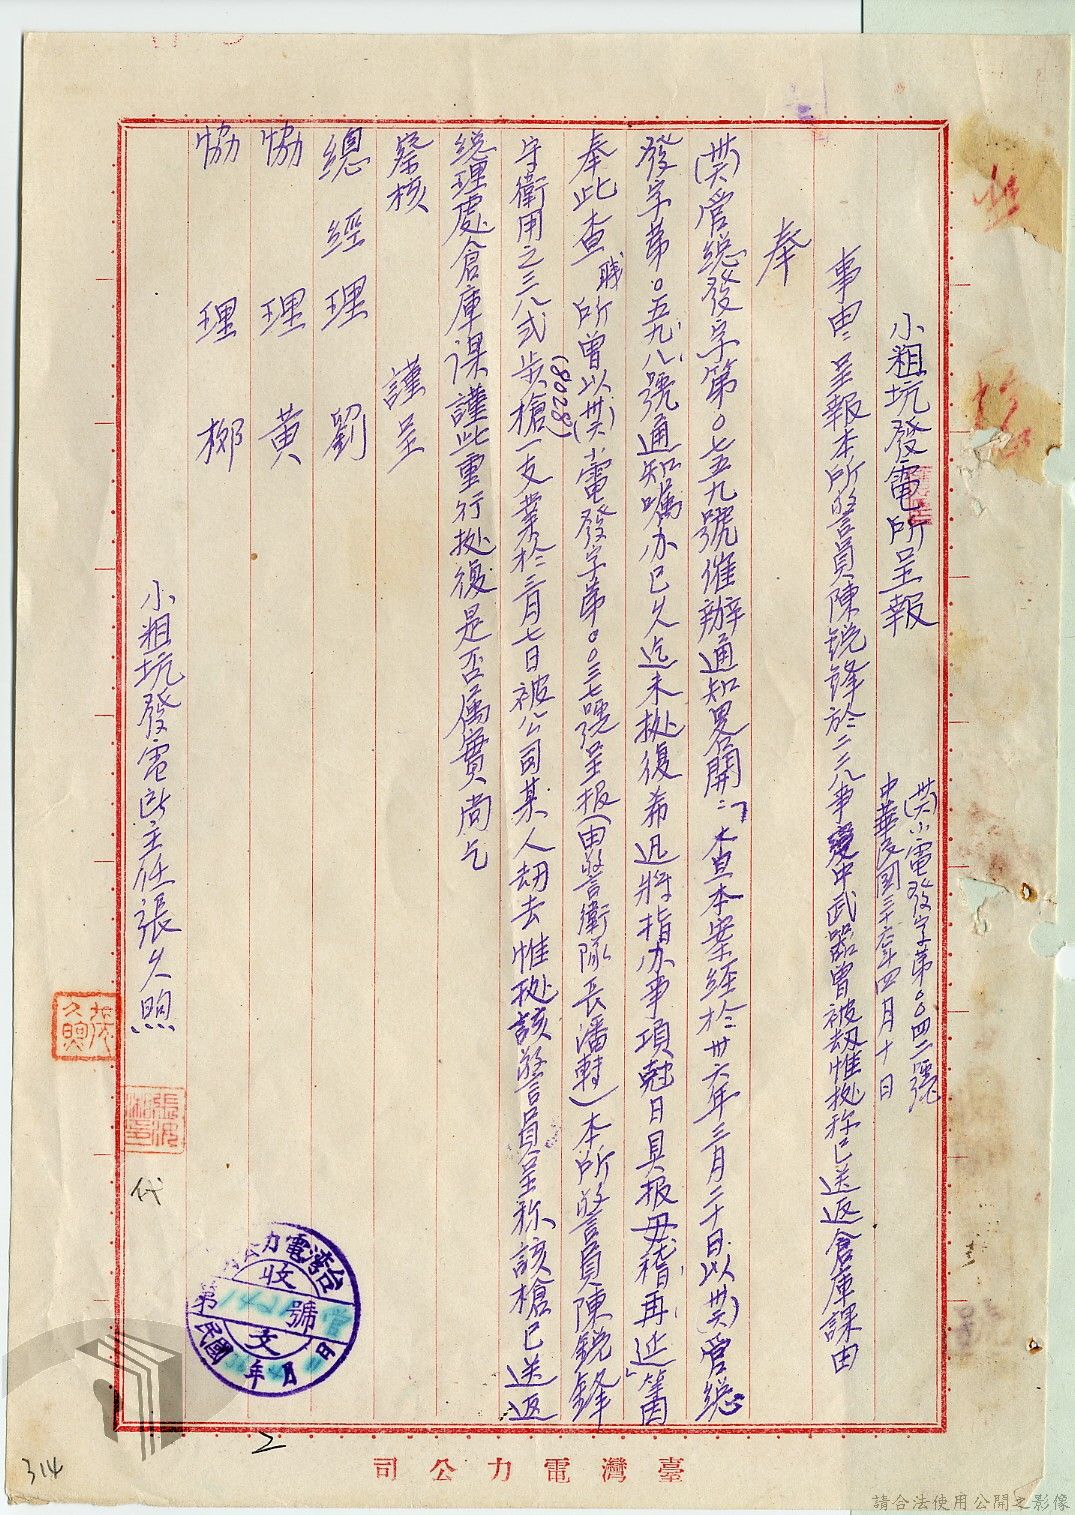 小粗坑發電所呈報
(卅六)小電發字第〇〇四二號
中華民國三十六年四月十日
事由：呈報本所警員陳銳鋒於二二八事變中武器曾被劫惟据称已送返倉庫課由
奉
(卅六)管總發字第〇七五九號催辦通知畧開：「查本案經於卅六年三月二十日以(卅六)管總
發字第〇五九八號通知嘱办已久迄未据復希迅將指办事項尅日具报毋稽再延」等因
奉此查職所曾以(卅六)小電發字第〇〇三七號呈报(由警衛隊長潘轉)本所警員陳銳鋒
守衛用之三八式步槍(8028)一支業於三月七日被公司某人刼去惟据該警員呈称該槍已送返
總理處倉庫課謹此重行据復是否属實尚乞
察核
謹呈
總經理 劉
協理 黃
協理 柳
小粗坑發電所主任張久煦
張久煦
代
台灣電力公司
收
第 號 管
文
民國 年 月 日
臺灣電力公司
2
314
請合法使用公開之影像